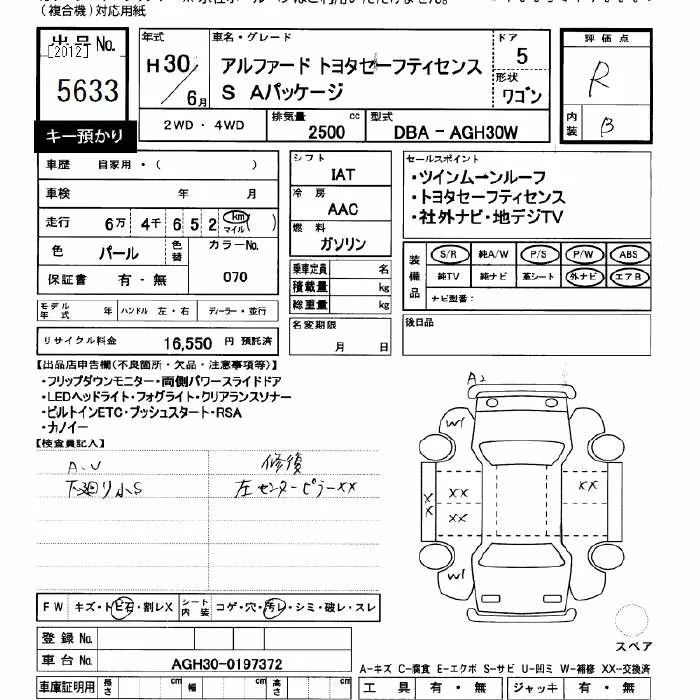 (複合機)対応用紙
出品No.
[2012]
5633
キー預かり
年式
H30/6月
車名・グレード
アルファード トヨタセーフティセンス
S Aパッケージ
ドア
5
形状
ワゴン
2WD・4WD
排気量
2500 cc
型式
DBA - AGH30W
評価点
R
内装
B
車歴 自家用・( )
車検 年 月
走行 6万 4千 6 5 2 km マイル ( )
色 パール 色替 カラーNo.
070
保証書 有・無
シフト
IAT
冷房
AAC
燃料
ガソリン
乗車定員 名
積載量 kg
総重量 kg
セールスポイント
・ツインムーンルーフ
・トヨタセーフティセンス
・社外ナビ・地デジTV
装備品
S/R 純A/W P/S P/W ABS
純TV 純ナビ 革シート 外ナビ エアB
ナビ型番:
モデル年式 年 ハンドル 左・右 ディーラー・並行
名変期限
月 日
後日品
リサイクル料金 16,550 円 預託済
【出品店申告欄(不良箇所・欠品・注意事項等)】
・フリップダウンモニター・両側パワースライドドア
・LEDヘッドライト・フォグライト・クリアランスソナー
・ビルトインETC・プッシュスタート・RSA
・カノイー
【検査員記入】
A.U
下廻り小S
修復
左センターピラーXX
A2
W1
XX
XX
XX
XX
W1
FW キズ・トビ石・割レX シート内装 コゲ・穴・汚レ・シミ・破レ・スレ
登録No.
車台No. AGH30-0197372
車庫証明用 長さ cm 幅 cm 高さ cm
スペア
A-キズ C-腐食 E-エクボ S-サビ U-凹ミ W-補修 XX-交換済
工具 有・無 ジャッキ 有・無